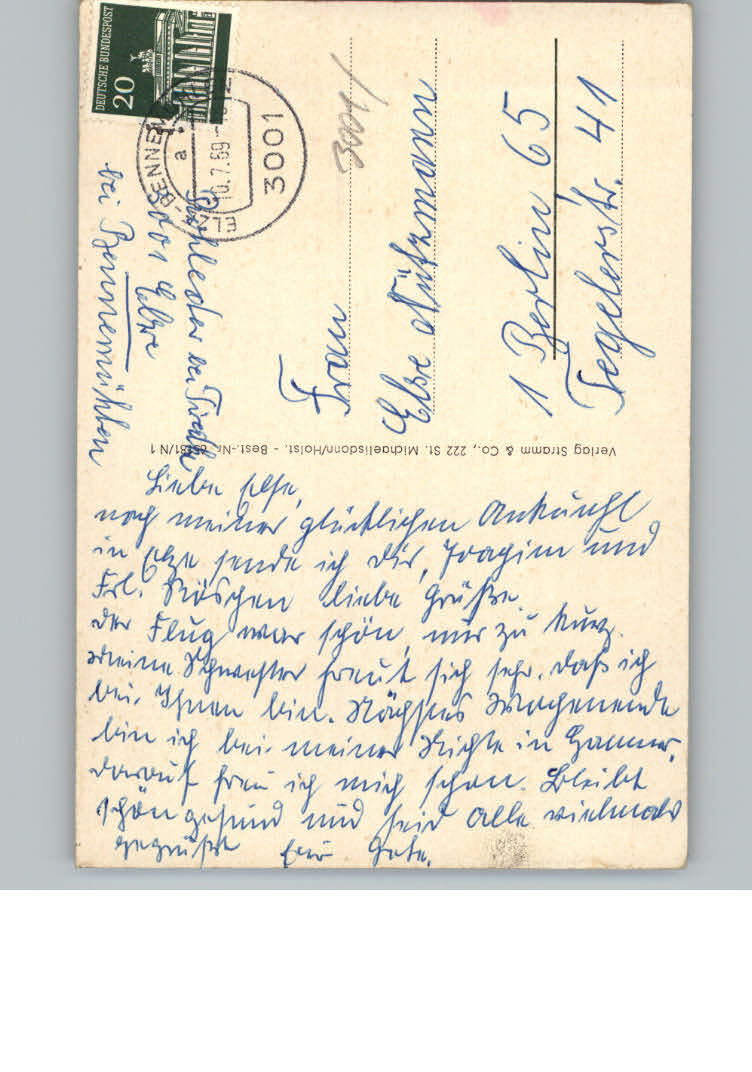 DEUTSCHE BUNDESPOST
20
3001
10.7.69
3001
bei Tiede
3001 Elze
bei Bennemühlen
Frau
Else Nützmann
1 Berlin 65
Tegelerstr. 41
Verlag Stramm & Co., 222 St. Michaelisdonn/Holst. - Best.-Nr.
Liebe Else,
nach meiner glücklichen Ankunft
in Elze sende ich Dir, Joachim und
Frl. Röschen liebe Grüße
der Flug war schön, nur zu kurz.
Meine Schwester freut sich sehr, daß ich
bei Ihnen bin. Nächstes Wochenende
bin ich bei meiner Nichte in Hannov.
darauf freu ich mich schon. Bleibt
schön gesund und seid alle vielmals
gegrüßt